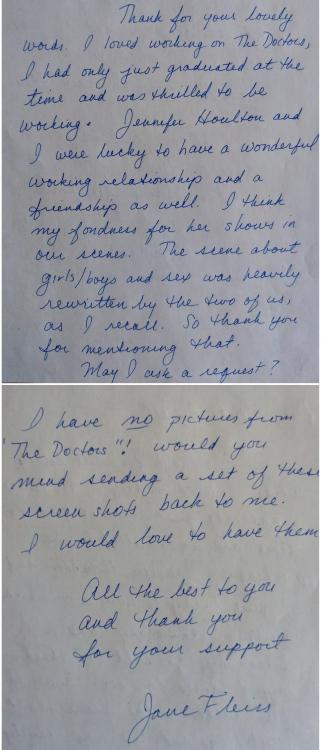 Thank for your lovely
words. I loved working on The Doctors,
I had only just graduated at the
time and was thrilled to be
working. Jennifer Houlton and
I were lucky to have a wonderful
working relationship and a
friendship as well. I think
my fondness for her shows in
our scenes. The scene about
girls/boys and sex was heavily
rewritten by the two of us,
as I recall. So thank you
for mentioning that.
May I ask a request?
I have no pictures from
"The Doctors"! would you
mind sending a set of these
screen shots back to me.
I would love to have them
All the best to you
and thank you
for your support
Jane Fleiss